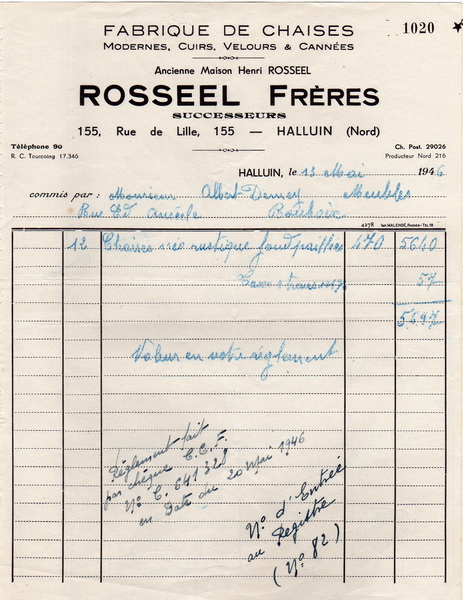 FABRIQUE DE CHAISES
MODERNES, CUIRS, VELOURS & CANNÉES
1020
Ancienne Maison Henri ROSSEEL
ROSSEEL FRÈRES
SUCCESSEURS
155, Rue de Lille, 155 — HALLUIN (Nord)
Téléphone 90
Ch. Post. 29026
R. C. Tourcoing 17.346
Producteur Nord 216
HALLUIN, le 13 Mai 1946
commis par : Monsieur Albert Meubles
Rue Ed Roubaix
4278
12 Chaises néo rustique fond paillées 470 5640
Taxe 1% 57
5697
Valeur en votre règlement
Règlement fait
par chèque C.C.F.
N° C. 641328
en date du 20 Mai 1946
N° d'Entrée
au Registre
(N° 82)